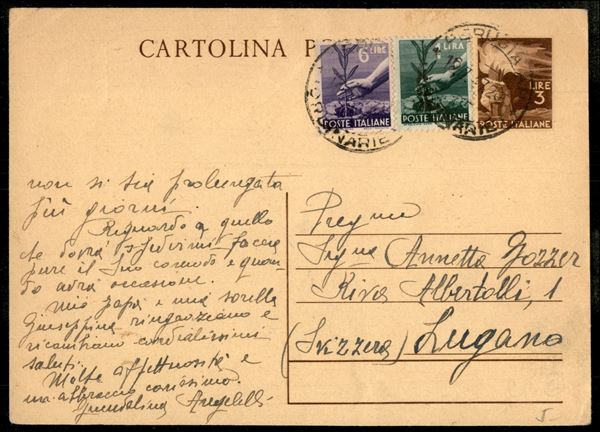 CARTOLINA P
6 LIRE
POSTE ITALIANE
1 LIRA
POSTE ITALIANE
LIRE
3
POSTE ITALIANE
PERUGIA
ORDINARIE
non si sia prolungata
più giorni.
Riguardo a quello
che dovrà spedirmi faccia
pure il Suo comodo e quan-
do avrà occasione.
Mio papà e mia sorella
Giuseppina ringraziano e
ricambiano cordialissimi
saluti.
Molte affettuosità e
un abbraccio carissimo.
Guendalina Angelelli
Preg.ma
Sig.na Annetta Gozzer
Riva Albertolli, 1
(Svizzera) Lugano
5-